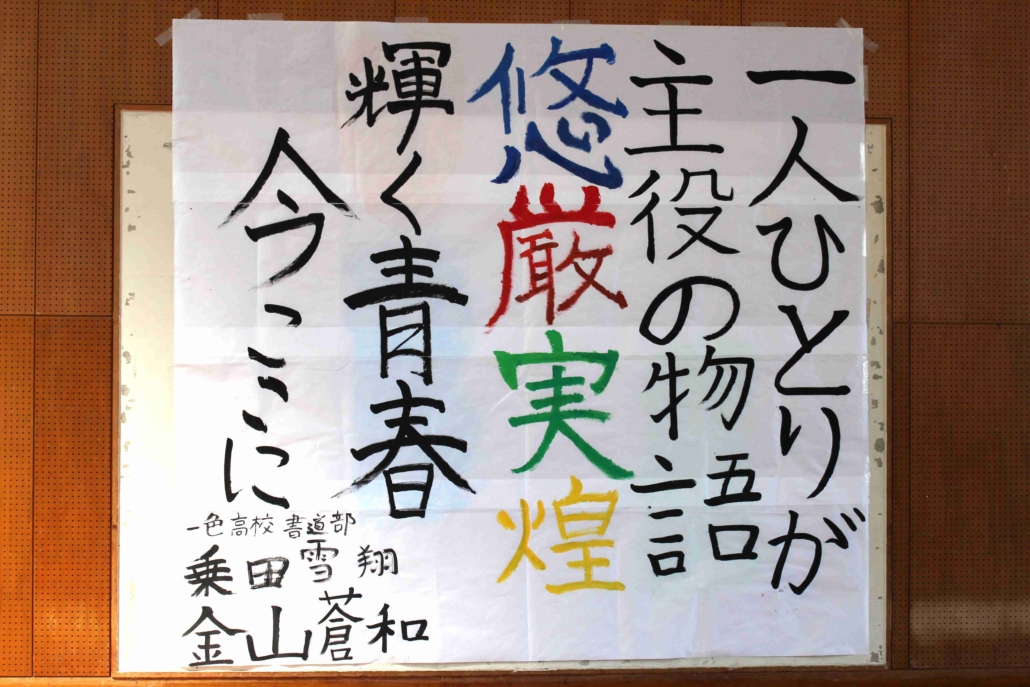 一人ひとりが
主役の物語
悠厳実煌
輝く青春
今ここに
一色高校 書道部
乗田雪翔
金山蒼和